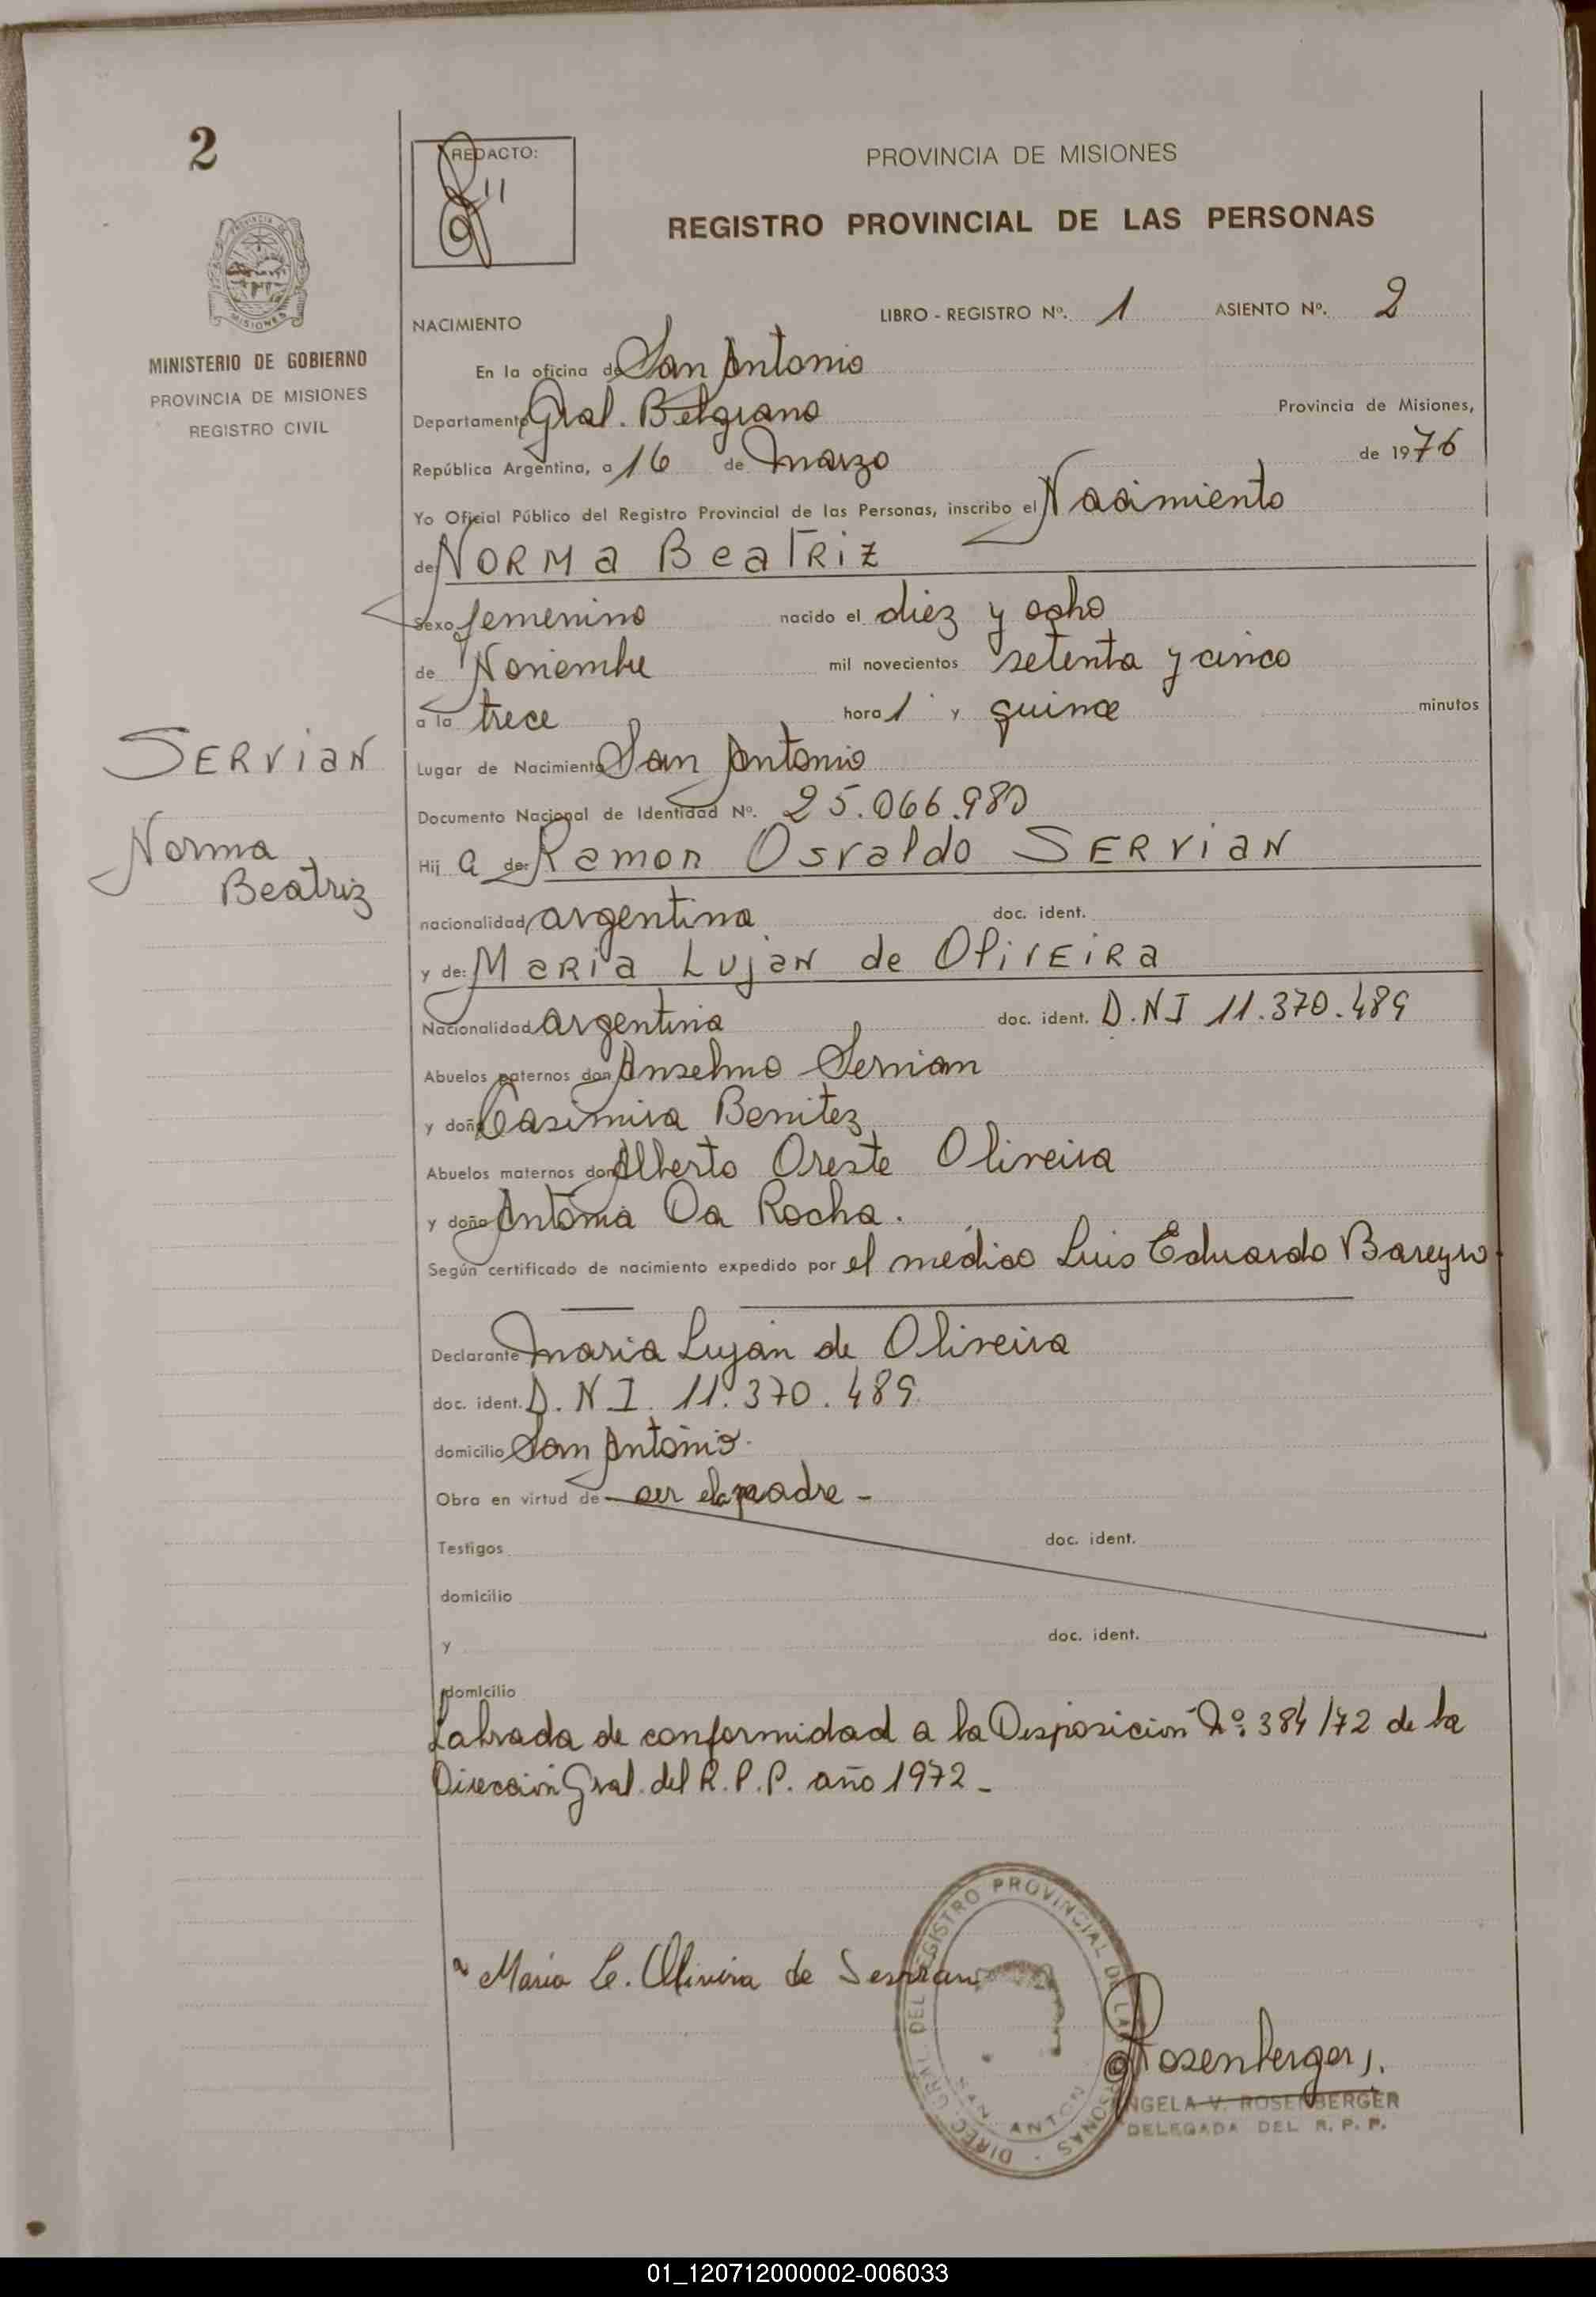 2
REDACTO:
PROVINCIA DE MISIONES
REGISTRO PROVINCIAL DE LAS PERSONAS
MISIONES
MINISTERIO DE GOBIERNO
PROVINCIA DE MISIONES
REGISTRO CIVIL
NACIMIENTO LIBRO - REGISTRO Nº. 1 ASIENTO Nº. 2
En la oficina de San Antonio
Departamento Gral. Belgrano Provincia de Misiones,
República Argentina, a 16 de Marzo de 1976
Yo Oficial Público del Registro Provincial de las Personas, inscribo el Nacimiento
de NORMA BEATRIZ
Sexo femenino nacido el diez y ocho
de Noviembre mil novecientos setenta y cinco
a la trece hora y quince minutos
SERVIAN
Norma
Beatriz
Lugar de Nacimiento San Antonio
Documento Nacional de Identidad Nº. 25.066.980
Hij a de: Ramon Osvaldo SERVIAN
nacionalidad argentina doc. ident.
y de: MARIA LUJAN de OliVEIRA
Nacionalidad argentina doc. ident. D.N.I 11.370.489
Abuelos paternos don Anselmo Servian
y doña Casimira Benitez
Abuelos maternos don Alberto Oreste Oliveira
y doña Antonia Da Rocha.
Según certificado de nacimiento expedido por el médico Luis Eduardo Bareyro
Declarante Maria Luján de Oliveira
doc. ident. D.N.I. 11.370.489
domicilio San Antonio.
Obra en virtud de ser la madre -
Testigos doc. ident.
domicilio
y doc. ident.
domicilio
Labrada de conformidad a la Disposición Nº: 384/72 de la
Dirección Gral. del R.P.P. año 1972 -
Maria L. Olivera de Servian
DIREC. GRAL. DEL REGISTRO PROVINCIAL DE LAS PERSONAS
SAN ANTONIO
Rosenberger
ANGELA V. ROSENBERGER
DELEGADA DEL R. P. P.
01_120712000002-006033